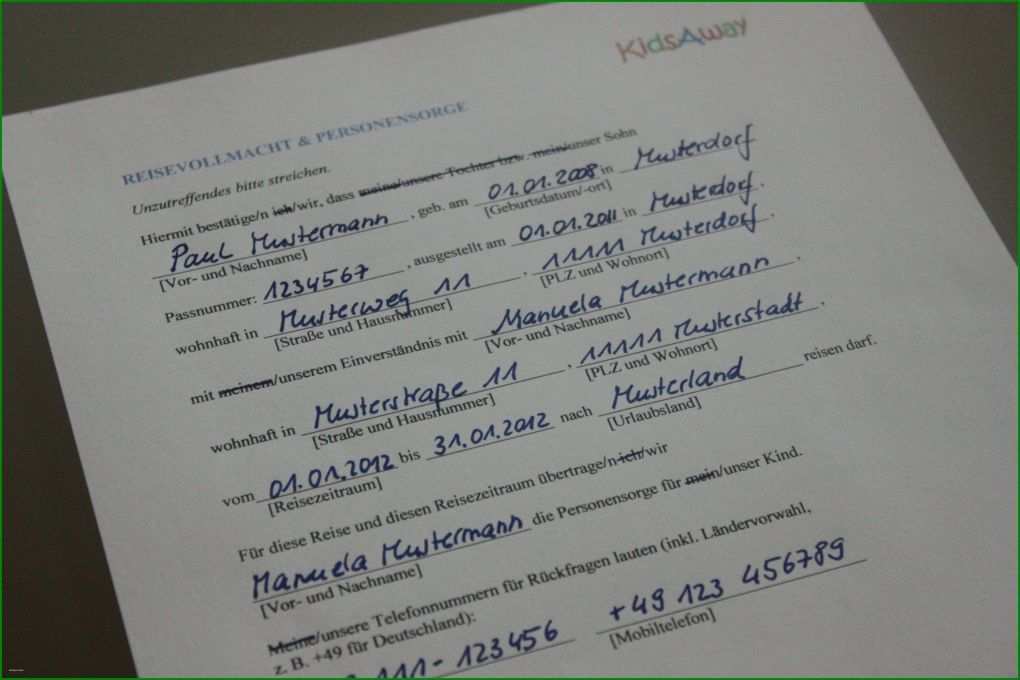 KidsAway
REISEVOLLMACHT & PERSONENSORGE
Unzutreffendes bitte streichen.
Hiermit bestätige/n ich/wir, dass meine/unsere Tochter bzw. mein/unser Sohn
Paul Mustermann, geb. am 01.01.2008 in Musterdorf
[Vor- und Nachname] [Geburtsdatum/-ort]
Passnummer: 1234567, ausgestellt am 01.01.2011 in Musterdorf.
wohnhaft in Musterweg 11, 11111 Musterdorf.
[Straße und Hausnummer] [PLZ und Wohnort]
mit meinem/unserem Einverständnis mit Manuela Mustermann,
[Vor- und Nachname]
wohnhaft in Musterstraße 11, 11111 Musterstadt.
[Straße und Hausnummer] [PLZ und Wohnort]
vom 01.01.2012 bis 31.01.2012 nach Musterland reisen darf.
[Reisezeitraum] [Urlaubsland]
Für diese Reise und diesen Reisezeitraum übertrage/n ich/wir
Manuela Mustermann die Personensorge für mein/unser Kind.
[Vor- und Nachname]
Meine/unsere Telefonnummern für Rückfragen lauten (inkl. Ländervorwahl,
z. B. +49 für Deutschland):
111-123456 +49 123 456789
[Mobiltelefon]